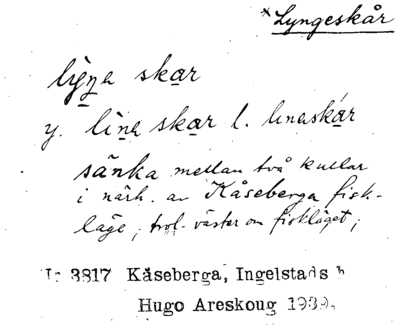 *Lyngeskår
liŋa skar
y. lina skar l. linaskar
sänka mellan två kullar
i närh. av Kåseberga fisk-
läge, trol. väster om fiskläget;
3817 Kåseberga, Ingelstads h
Hugo Areskoug 1939.